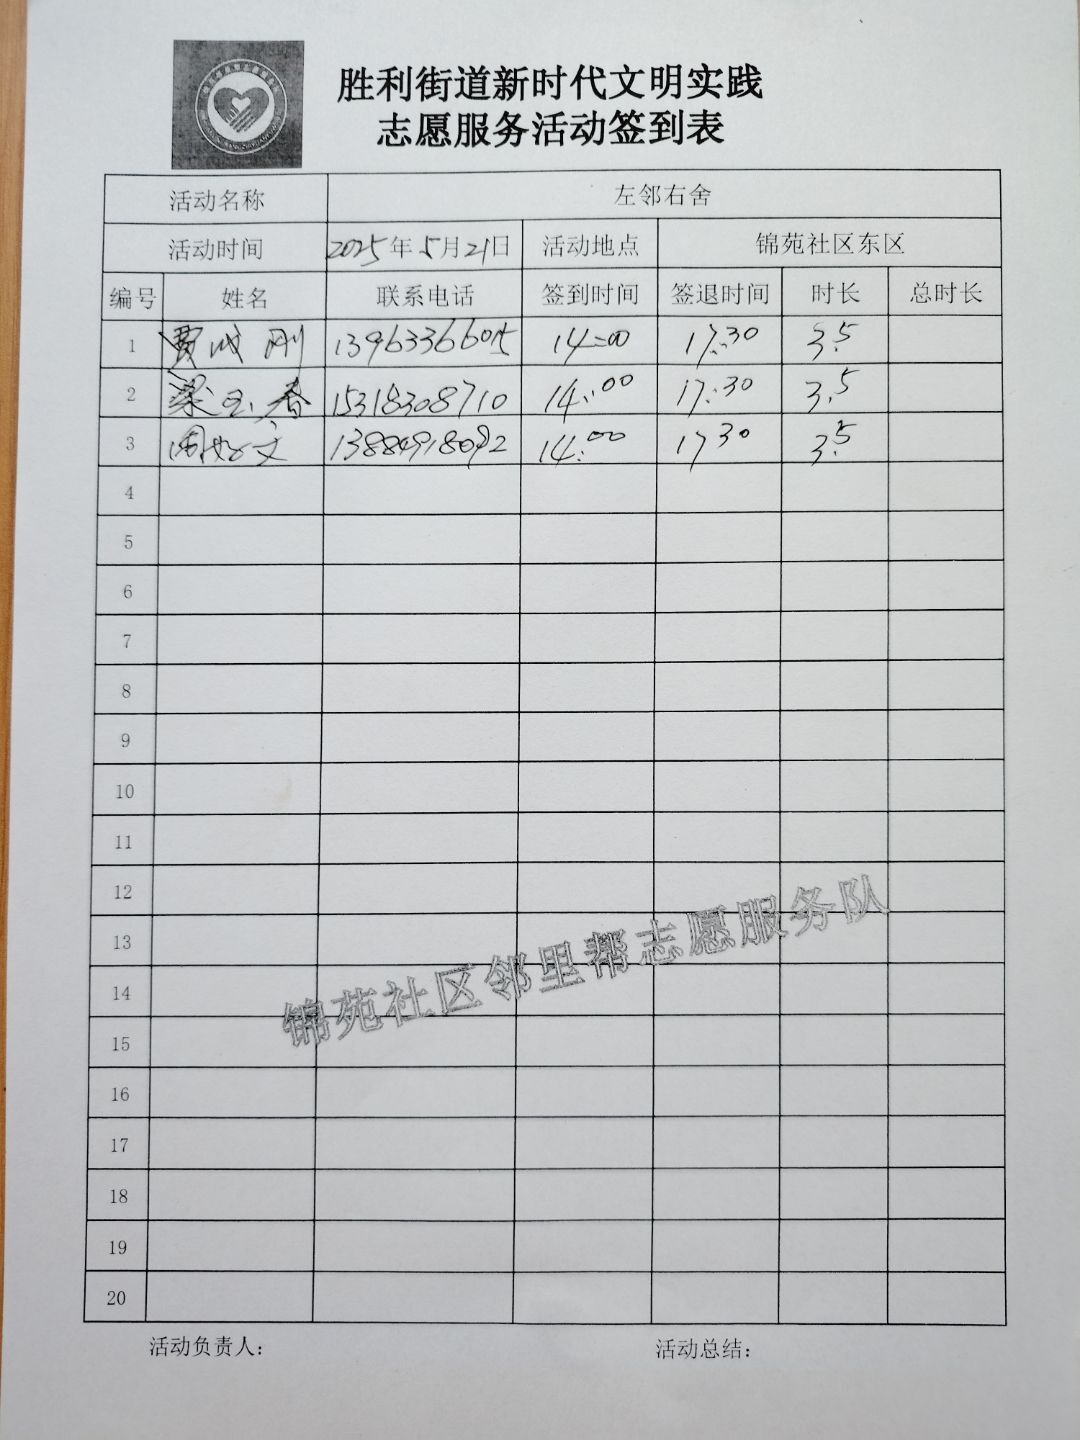 胜利街道新时代文明实践
志愿服务活动签到表
活动名称 左邻右舍
活动时间 2025年5月21日 活动地点 锦苑社区东区
编号 姓名 联系电话 签到时间 签退时间 时长 总时长
1 贾成刚 13963366015 14:00 17:30 3.5
2 梁玉春 15318308710 14:00 17:30 3.5
3 周好文 13884918092 14:00 17 30 3.5
4
5
6
7
8
9
10
11
12
13
14
15
16
17
18
19
20
锦苑社区邻里帮志愿服务队
活动负责人： 活动总结：